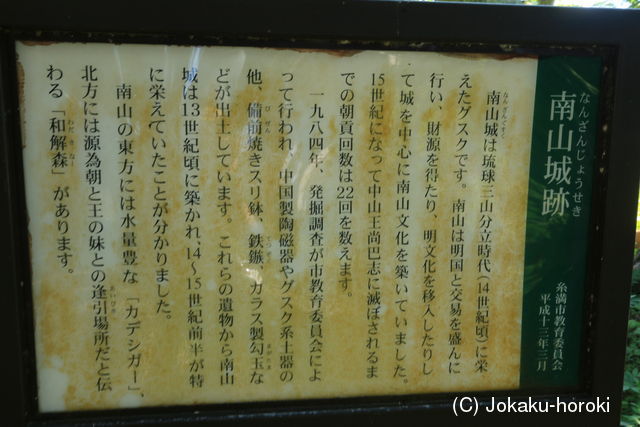 南山城跡
なんざんじょうせき
糸満市教育委員会
平成十三年三月
なんざんぐすく
南山城は琉球三山分立時代(14世紀頃)に栄
えたグスクです。南山は明国と交易を盛んに
行い、財源を得たり、明文化を移入したりし
て城を中心に南山文化を築いていました。
15世紀になって中山王尚巴志に滅ぼされるま
での朝貢回数は22回を数えます。
一九八四年、発掘調査が市教育委員会によ
って行われ、中国製陶磁器やグスク系土器の
びぜん
まがたま
他、備前焼きスリ鉢、鉄鏃、ガラス製勾玉な
どが出土しています。これらの遺物から南山
城は13世紀頃に築かれ、14～15世紀前半が特
に栄えていたことが分かりました。
南山の東方には水量豊な「カデシガー」、
あいびき
北方には源為朝と王の妹との逢引場所だと伝
わる「和解森」があります。
(C) Jokaku-horoki